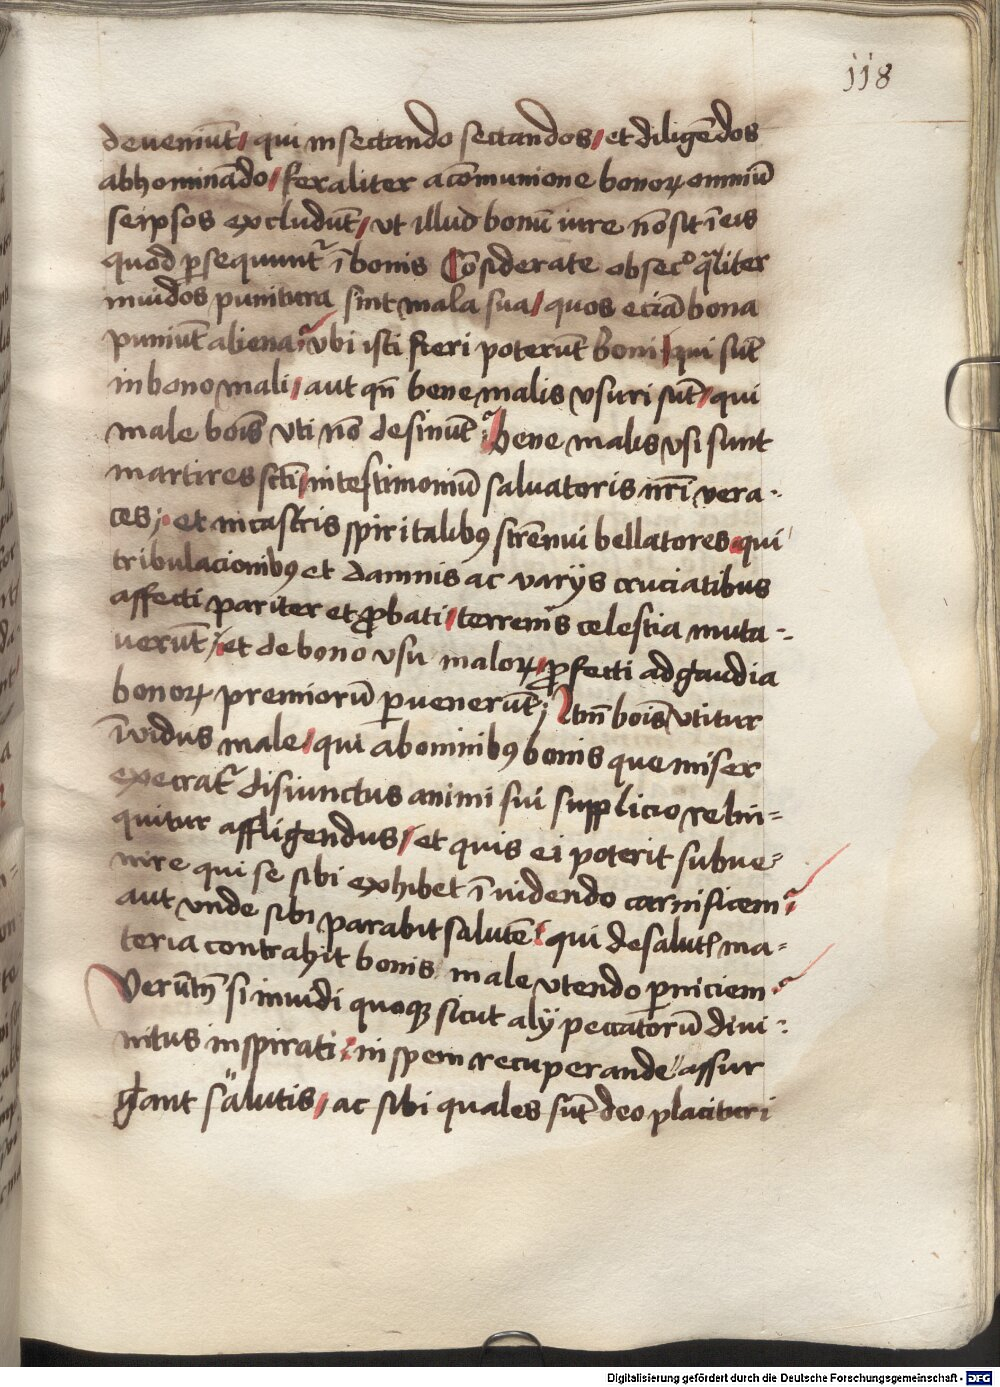 118
deueniūt / qui insectando sectandos / et diligēdos
abhominādo / feraliter acōmunione bonoꝝ omniū
seipsos excludūt / vt illud bonū iure nō sit ī eis
quod ꝑsequunt᷑ ī bonis Cōsiderate obsecº q̄liter
inuidos punitura sint mala sua / quos eciā bona
puniūt aliena? vbi isti fieri poterūt boni / qui sūt
in bono mali / aut qn̄ bene malis vsuri sūt / qui
male boīs vti nō desinūt? bene malis vsi sunt
martires sctī / in testimoniū saluatoris nrī vera-
ces; et in castris spiritalibꝰ strēnui bellatores qui
tribulacionibꝰ et damnis ac varijs cruciatibus
affecti pariter et ꝓbati / terrenis celestia muta-
uerūt; et de bono vsu maloꝝ / ꝓfecti ad gaudia
bonoꝝ premiorū ꝑuenerūt; Itm̄ boīs vtitur
īuidus male / qui abominibꝰ bonis que miser
execrat᷑ disiunctus animi sui supplicio relin=
quitur affligendus / et quis ei poterit subue=
nire qui se sibi exhibet īuidendo carnificem?
aut vnde sibi parabit salutē qui de salutꝭ ma=
teria contrahit bonis male vtendo ꝑniciem?
Verūtn̄ si inuidi quoqꝫ sicut alij peccatorū diui-
nitus inspirati in spem recuperande" assur
gant s"alutis / ac sibi quales sūt deo placituri
Digitalisierung gefördert durch die Deutsche Forschungsgemeinschaft - DFG